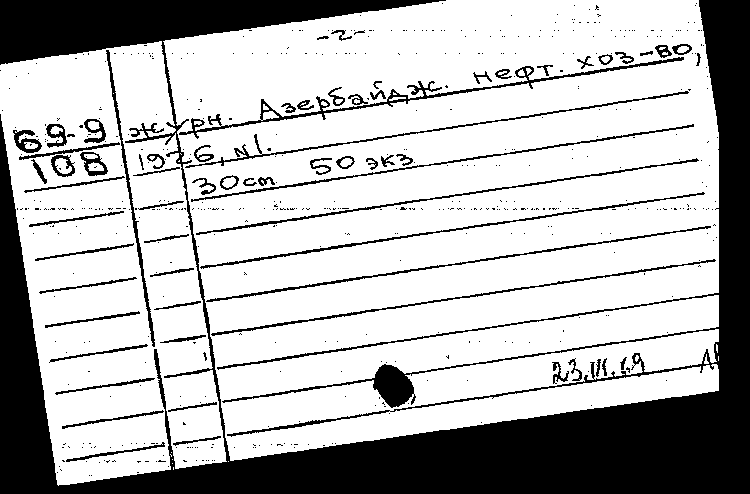 -2-
69-9 журн. Азербайдж. нефт. хоз-во,
108 1926, N1.
30cm 50 экз
23.VI.69